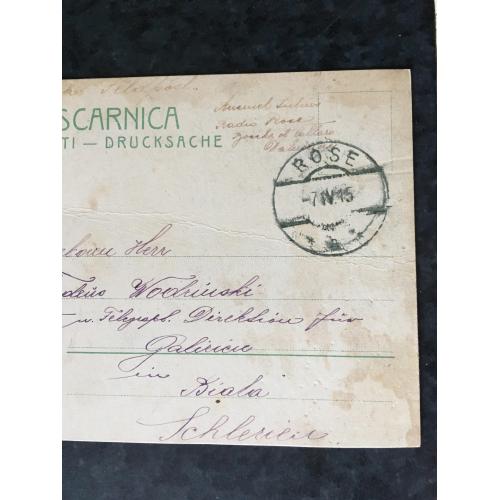 Feldpost.
SCARNICA
TI — DRUCKSACHE
Radio Rose
ROSE
-7 IV 15
* a *
Herr
Wodzinski
u. Telegraph. Direktion für
Galizien
in
Biala
Schlesien